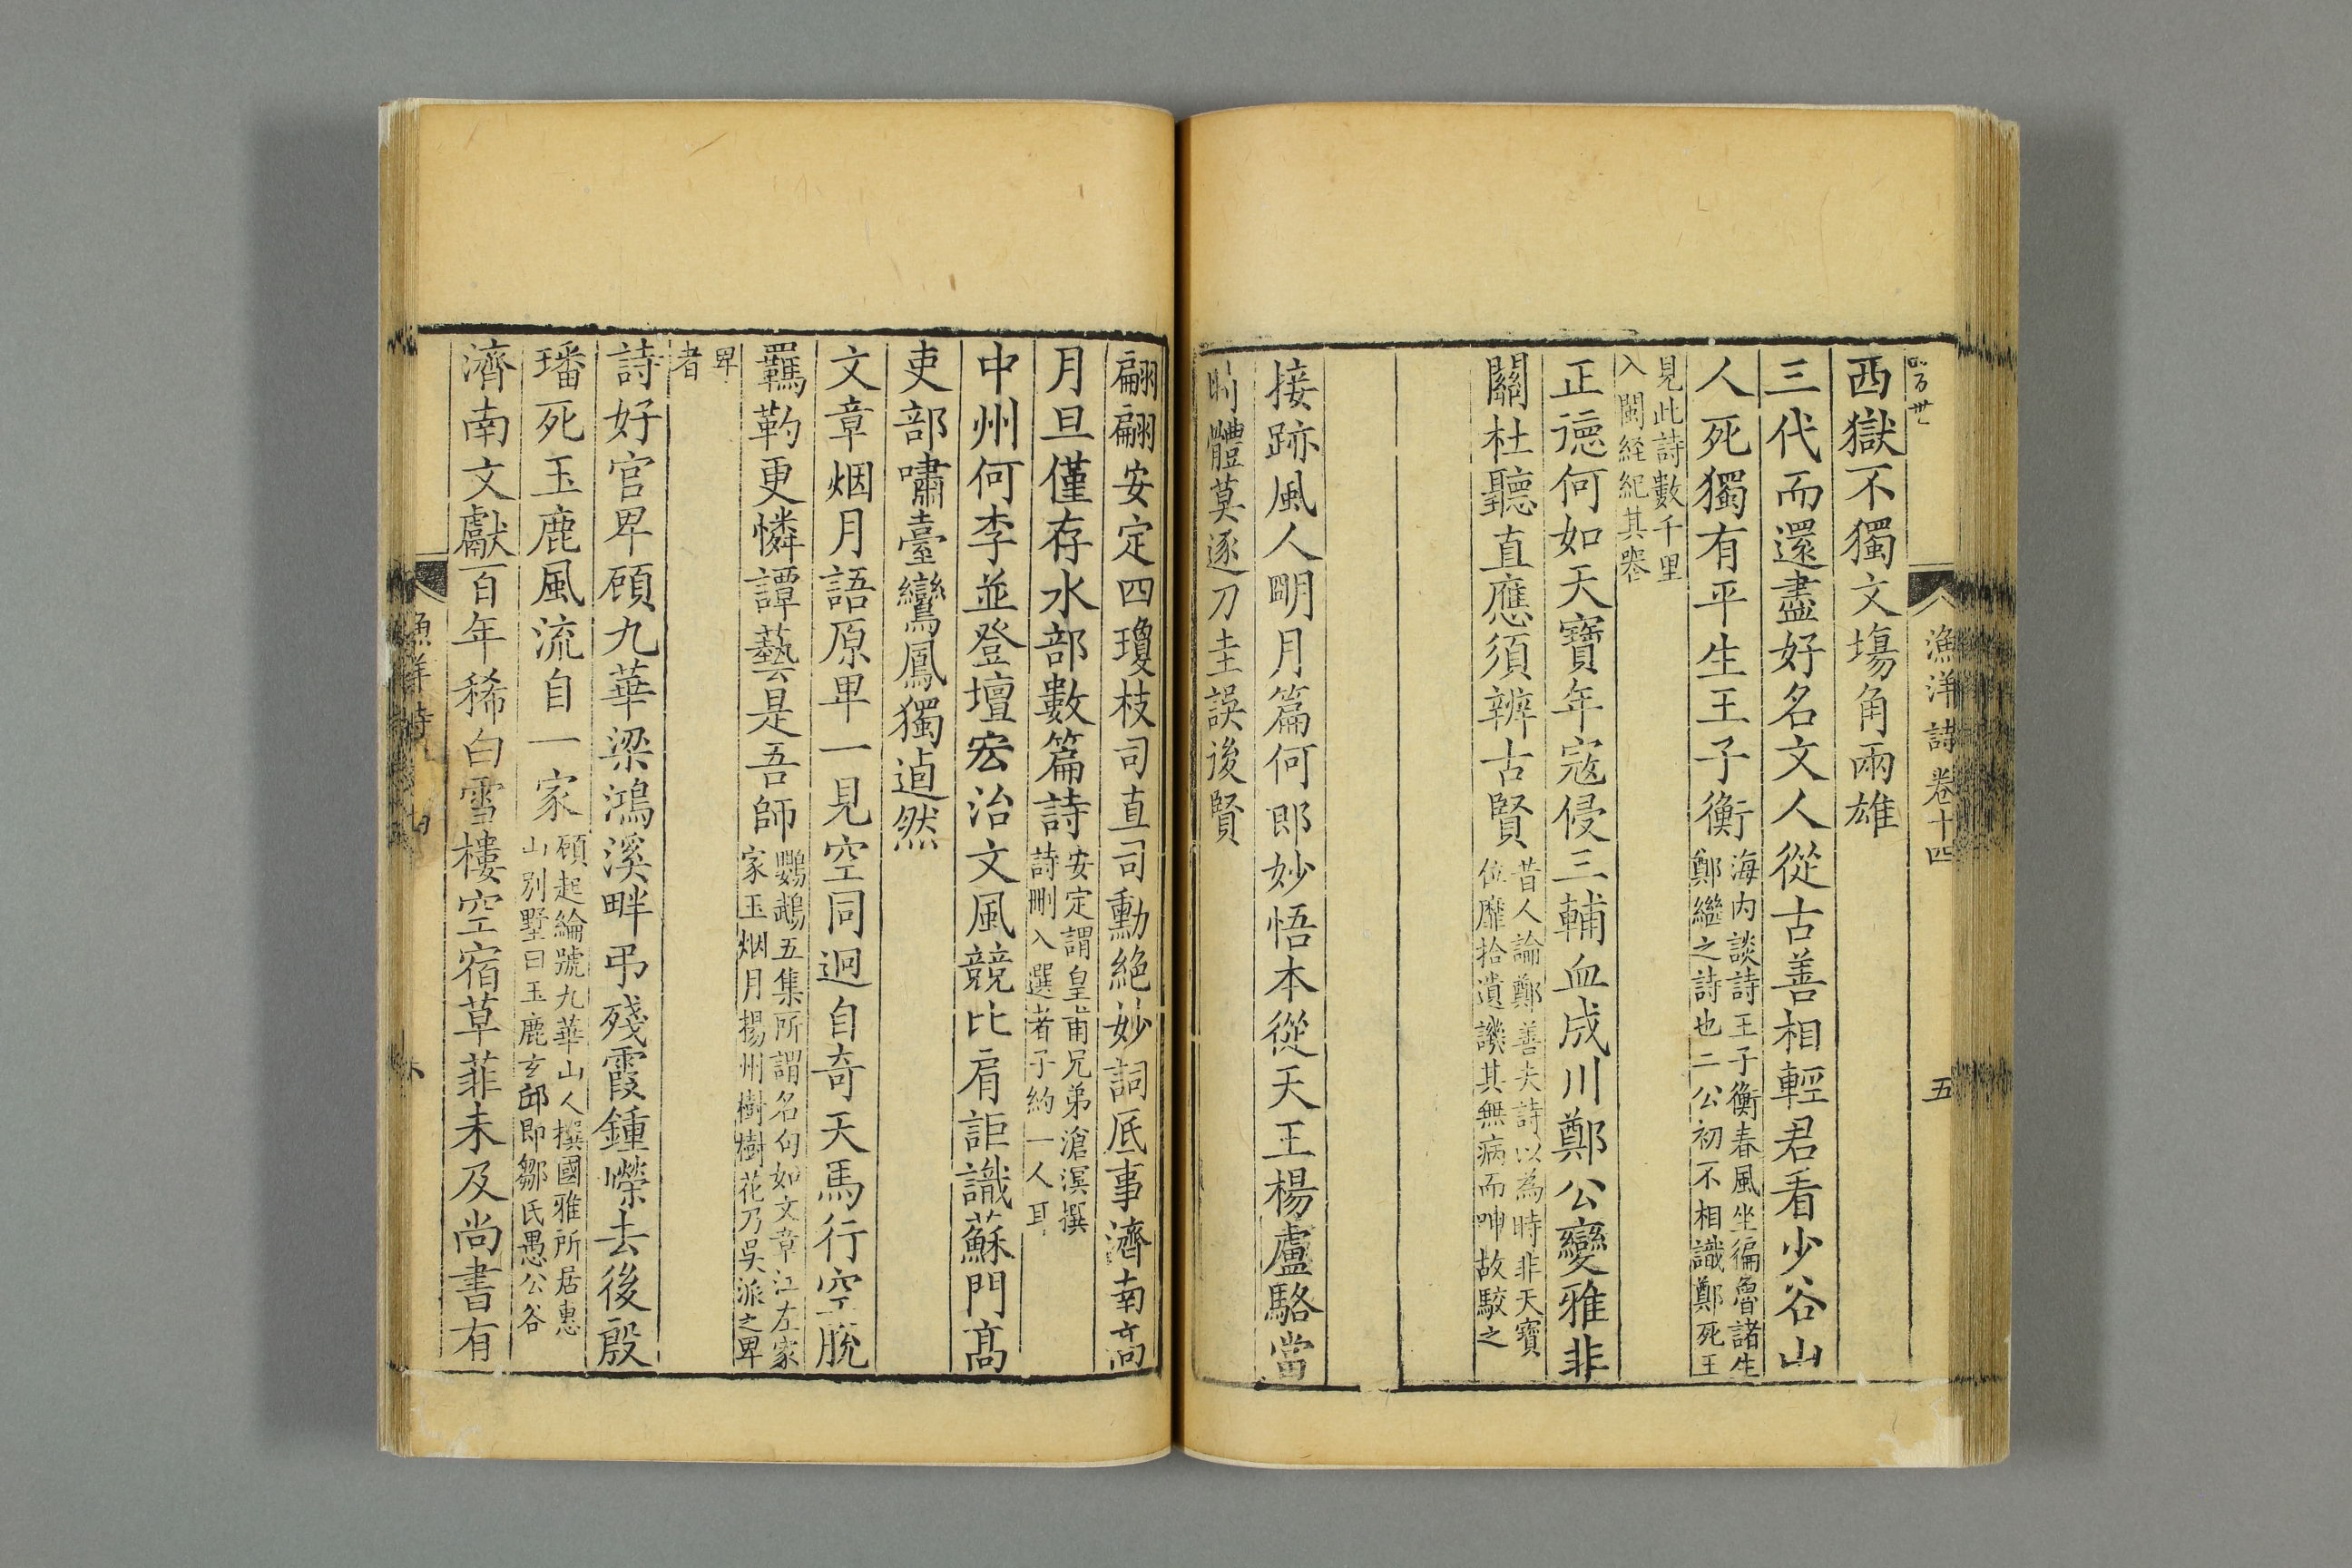 漁洋詩卷十四 五
西獄不獨文塲角兩雄
三代而還盡好名文人從古善相輕君看少谷山
人死獨有平生王子衡
海內談詩王子衡春風坐徧魯諸生
鄭繼之詩也二公初不相識鄭死王
見此詩數千里
入閩經紀其喪
正德何如天寶年寇侵三輔血成川鄭公變雅非
關杜聽直應須辨古賢
昔人論鄭善夫詩以為時非天寶
位靡拾遺譏其無病而呻故駁之
接跡風人明月篇何郎妙悟本從天王楊盧駱當
時體莫逐刀圭誤後賢
翩翩安定四瓊枝司直司勳絶妙詞底事濟南高
月旦僅存水部數篇詩
安定謂皇甫兄弟滄溟撰
詩刪入選者子約一人耳
中州何李並登壇宏治文風競比肩詎識蘇門高
吏部嘯臺鸞鳳獨逌然
文章烟月語原卑一見空同迥自奇天馬行空脫
羈靮更憐譚藝是吾師
鸚鵡五集所謂名句如文章江左家
家玉烟月揚州樹樹花乃吳派之卑
卑
者
詩好官卑頋九華梁鴻溪畔弔殘霞鍾嶸去後殷
璠死玉鹿風流自一家
頋起綸號九華山人撰國雅所居惠
山別墅曰玉鹿玄邱即鄒氏愚公谷
濟南文獻百年稀白雪樓空宿草菲未及尚書有
漁洋詩